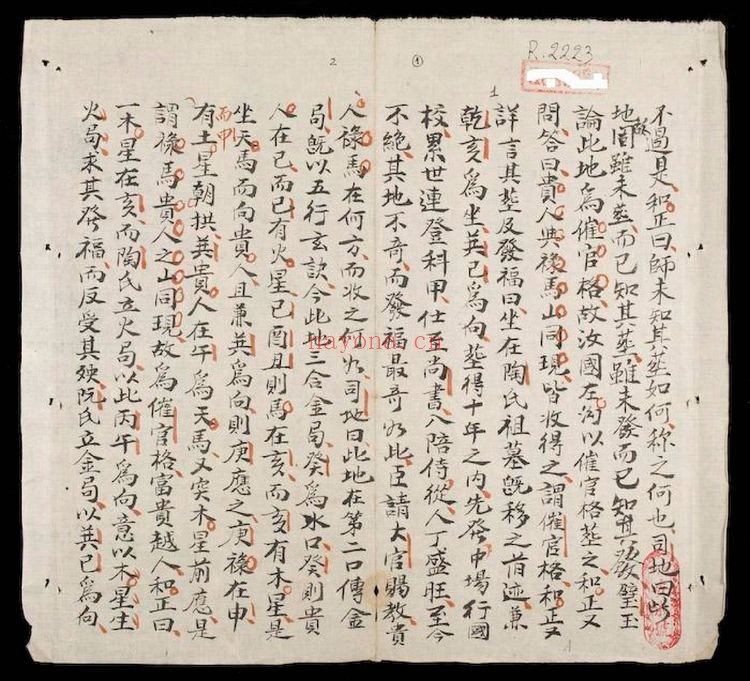 R.2223
1
①
2
不過是和正曰師未知其葬如何称之何也司地曰此
地圖雖未葬而已知其葬雖未發而已知其發璧玉
論此地為催官格故汝國左以催官格葬之和正又
問答曰貴人與祿馬山同現皆收得之謂催官格和正又
詳言其葬及發福曰坐在陶氏祖墓既移之迹兼
乾亥為坐巽巳為向葬得十年之內先發中場行國
校累世連登科甲仕至尚書八陪侍從人丁盛旺至今
不絕其地不奇而發福最奇如此臣請大官賜教貴
人祿馬在何方而收之何如司地曰此地在第二口傳金
局既以五行玄訣今此地三合金局癸為水口癸則貴
人在巳而巳有火星巳酉丑則馬在亥而亥有木星是
坐天馬而向貴人且兼巽為向則庚應之庚祿在申
而申
有土星朝拱巽貴人在午為天馬又突木星前應是
謂祿馬貴人之山同現故為催官格富貴越人和正曰
一木星在亥而陶氏立火局以此丙午為向意以木星生
火局求其發福而反受其殃阮氏立金局以巽巳為向
1